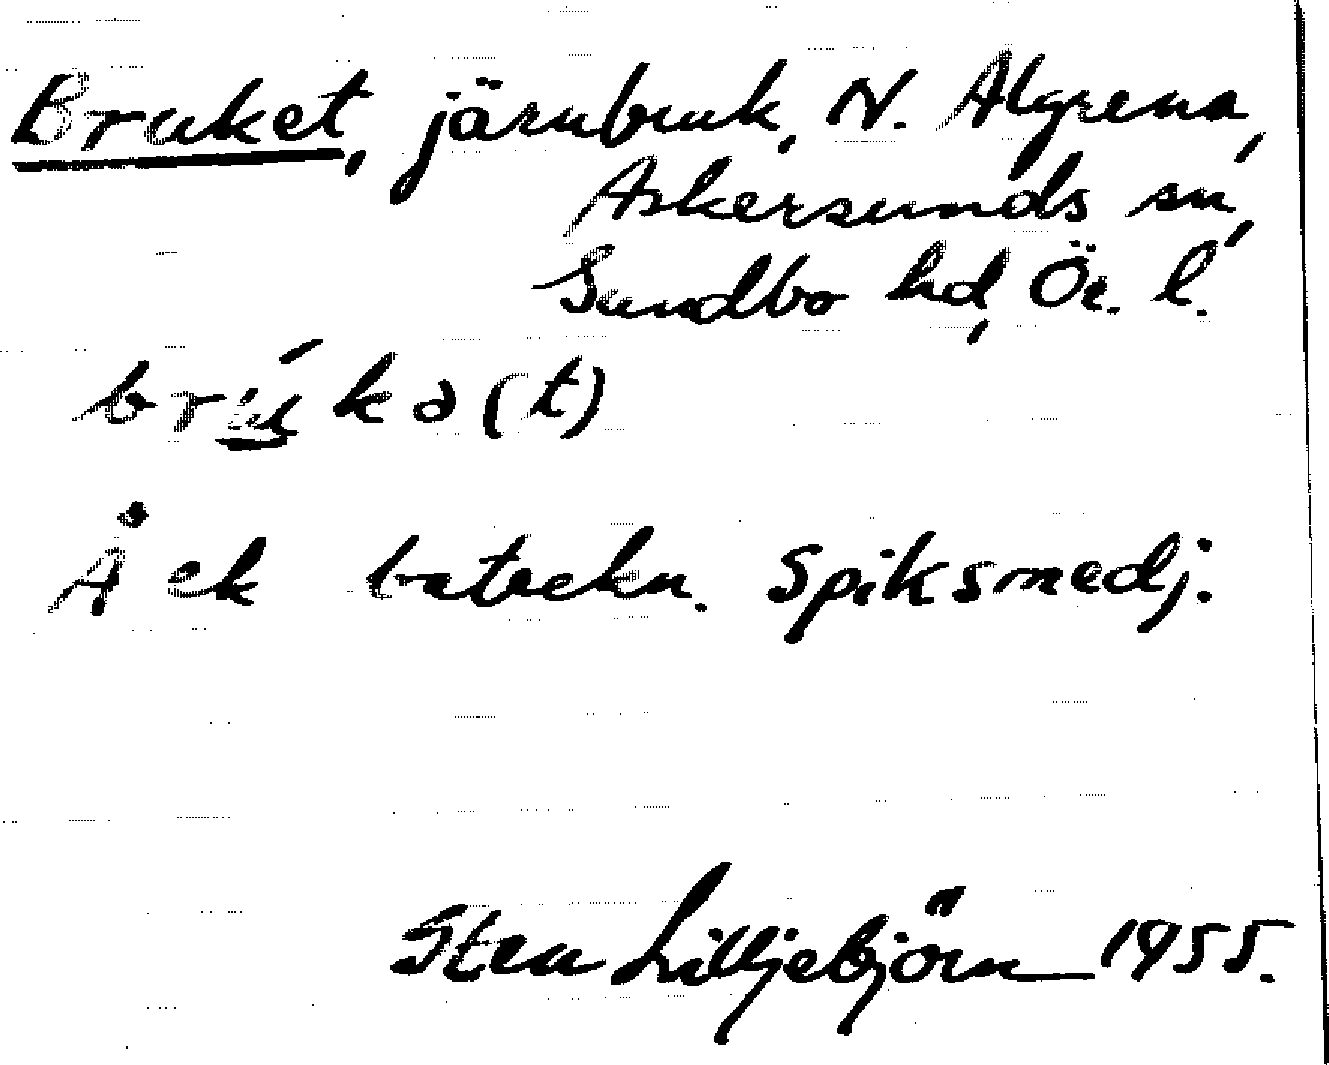 Bruket, järnbruk, N. Algrena,
Askersunds sn,
Sundbo hd, Ör. l.
brúkə(t)
Åek beteckn. Spiksmedj.
Sten Lilljebjörn 1955.